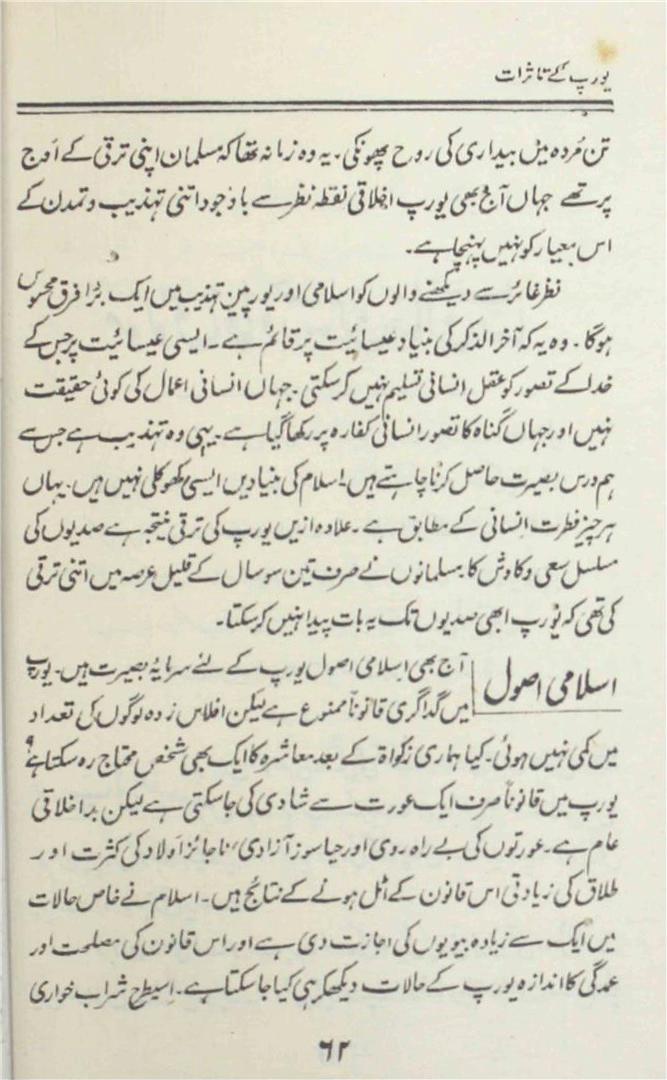 یورپ کے تاثرات
تن مُردہ میں بیداری کی روح پھونکی۔ یہ وہ زمانہ تھا کہ مسلمان اپنی ترقی کے اَوج
پر تھے جہاں آج بھی یورپ اخلاقی نقطہ نظر سے باوجود اتنی تہذیب و تمدن کے
اس معیار کو نہیں پہنچا ہے۔
نظر غائر سے دیکھنے والوں کو اسلامی اور یورپین تہذیب میں ایک بڑا فرق محسوس
ہوگا۔ وہ یہ کہ آخرالذکر کی بنیاد عیسائیت پر قائم ہے۔ ایسی عیسائیت پر جس کے
خدا کے تصور کو عقل انسانی تسلیم نہیں کر سکتی۔ جہاں انسانی اعمال کی کوئی حقیقت
نہیں اور جہاں گناہ کا تصور انسانی کفارہ پر رکھا گیا ہے۔ یہی وہ تہذیب ہے جس سے
ہم درس بصیرت حاصل کرنا چاہتے ہیں۔ اسلام کی بنیادیں ایسی کھوکلی نہیں ہیں۔ یہاں
ہر چیز فطرت انسانی کے مطابق ہے۔ علاوہ ازیں یورپ کی ترقی نتیجہ ہے صدیوں کی
مسلسل سعی و کاوش کا۔ مسلمانوں نے صرف تین سو سال کے قلیل عرصہ میں اتنی ترقی
کی تھی کہ یورپ ابھی صدیوں تک یہ بات پیدا نہیں کر سکتا۔
اسلامی اصول
آج بھی اسلامی اصول یورپ کے لئے سرمایۂ بصیرت ہیں۔ یورپ
میں گداگری قانوناً ممنوع ہے لیکن افلاس زدہ لوگوں کی تعداد
میں کمی نہیں ہوئی۔ کیا ہماری زکواۃ کے بعد معاشرہ کا ایک بھی شخص محتاج رہ سکتا ہے؟
یورپ میں قانوناً صرف ایک عورت سے شادی کی جا سکتی ہے لیکن بداخلاقی
عام ہے۔ عورتوں کی بے راہ روی اور حیا سوز آزادی، ناجائز اولاد کی کثرت اور
طلاق کی زیادتی اس قانون کے اٹل ہونے کے نتائج ہیں۔ اسلام نے خاص حالات
میں ایک سے زیادہ بیویوں کی اجازت دی ہے اور اس قانون کی مصلحت اور
عمدگی کا اندازہ یورپ کے حالات دیکھکر ہی کیا جا سکتا ہے۔ اسیطرح شراب خواری
۶۲